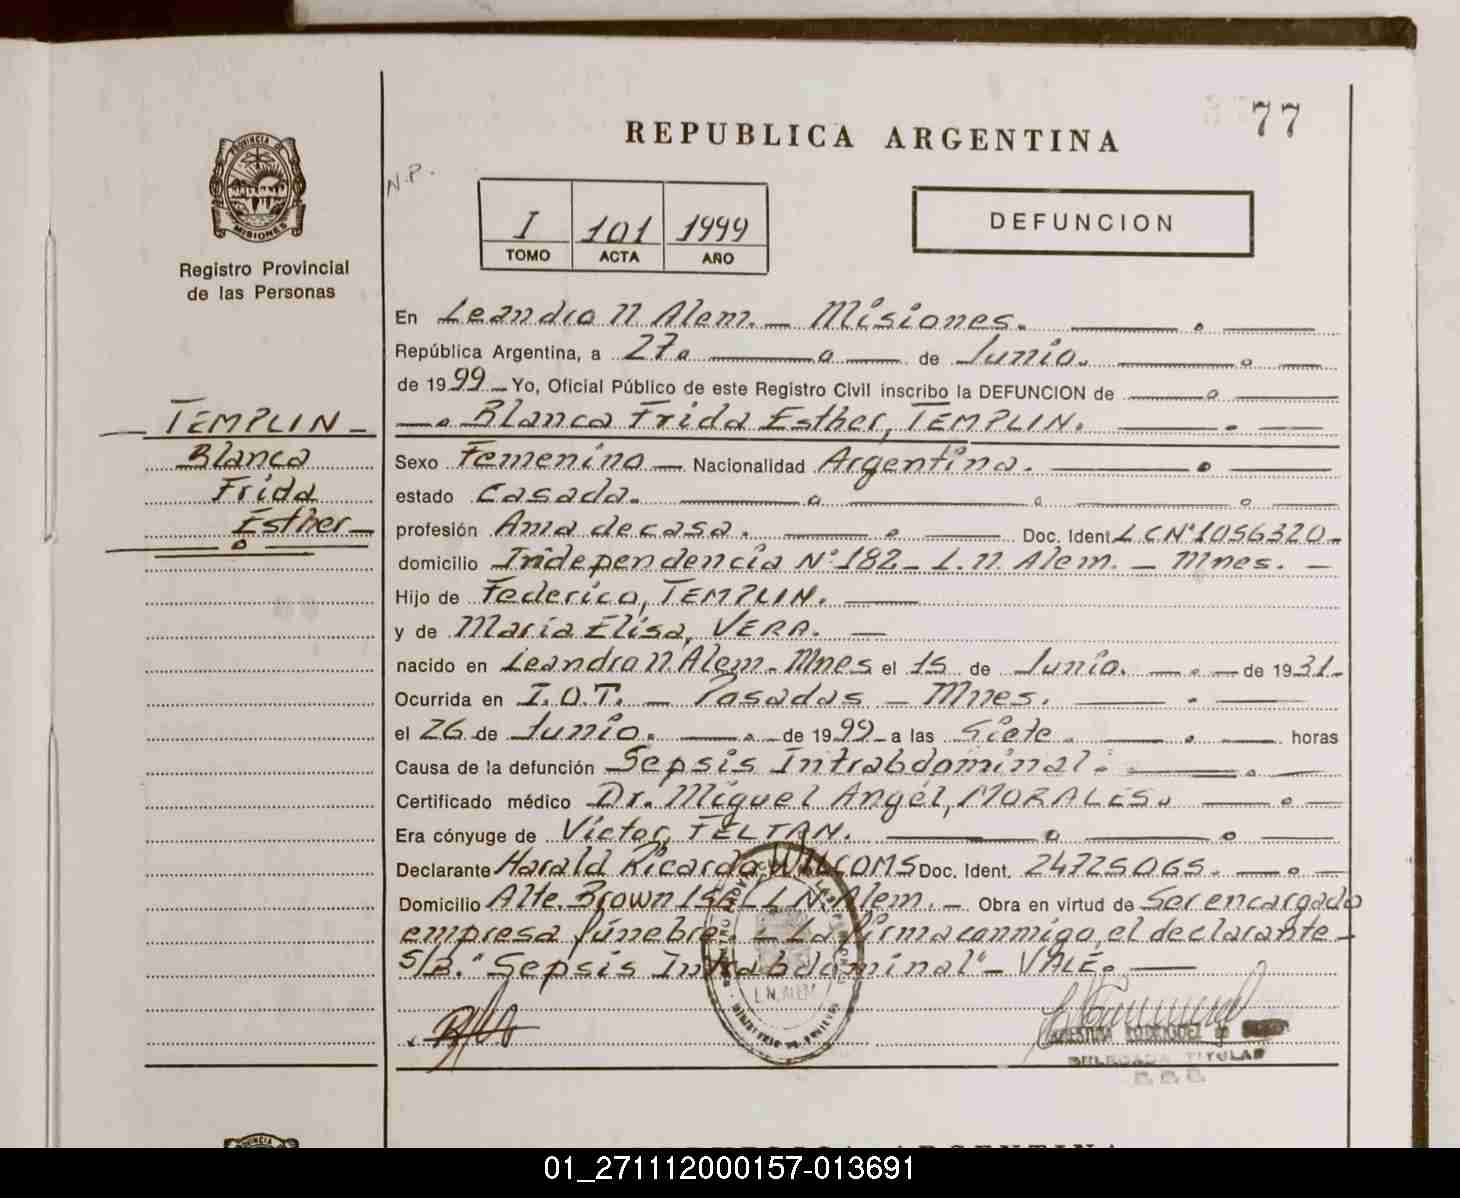 77
REPUBLICA ARGENTINA
PROVINCIA DE
MISIONES
Registro Provincial
de las Personas
N.P.
I 101 1999
TOMO ACTA AÑO
DEFUNCION
En Leandro N Alem. - Misiones.
República Argentina, a 27 de Junio.
de 1999 - Yo, Oficial Público de este Registro Civil inscribo la DEFUNCION de
Blanca Frida Esther, TEMPLIN.
TEMPLIN -
Blanca
Frida
Esther -
Sexo Femenino - Nacionalidad Argentina.
estado Casada.
profesión Ama de casa. Doc. Ident. L C Nº 1056320 -
domicilio Independencia Nº 182 - L. N. Alem. - Mnes. -
Hijo de Federico, TEMPLIN.
y de María Elisa, VERA. -
nacido en Leandro N. Alem - Mnes el 15 de Junio. de 1931 -
Ocurrida en I.O.T. - Posadas - Mnes.
el 26 de Junio. de 1999 - a las Siete. horas
Causa de la defunción Sepsis Intrabdominal.
Certificado médico Dr. Miguel Angel, MORALES.
Era cónyuge de Víctor, FELTAN.
Declarante Harald Ricardo Doc. Ident. 24725065.
Domicilio Alte. Brown L N. Alem. - Obra en virtud de Ser encargado
empresa fúnebre. - La firma conmigo, el declarante -
S/R. "Sepsis Intrabdominal" - VALE. -
L. N. ALEM
RODRIGUEZ
DELEGADA TITULAR
REPUBLICA ARGENTINA
01_271112000157-013691